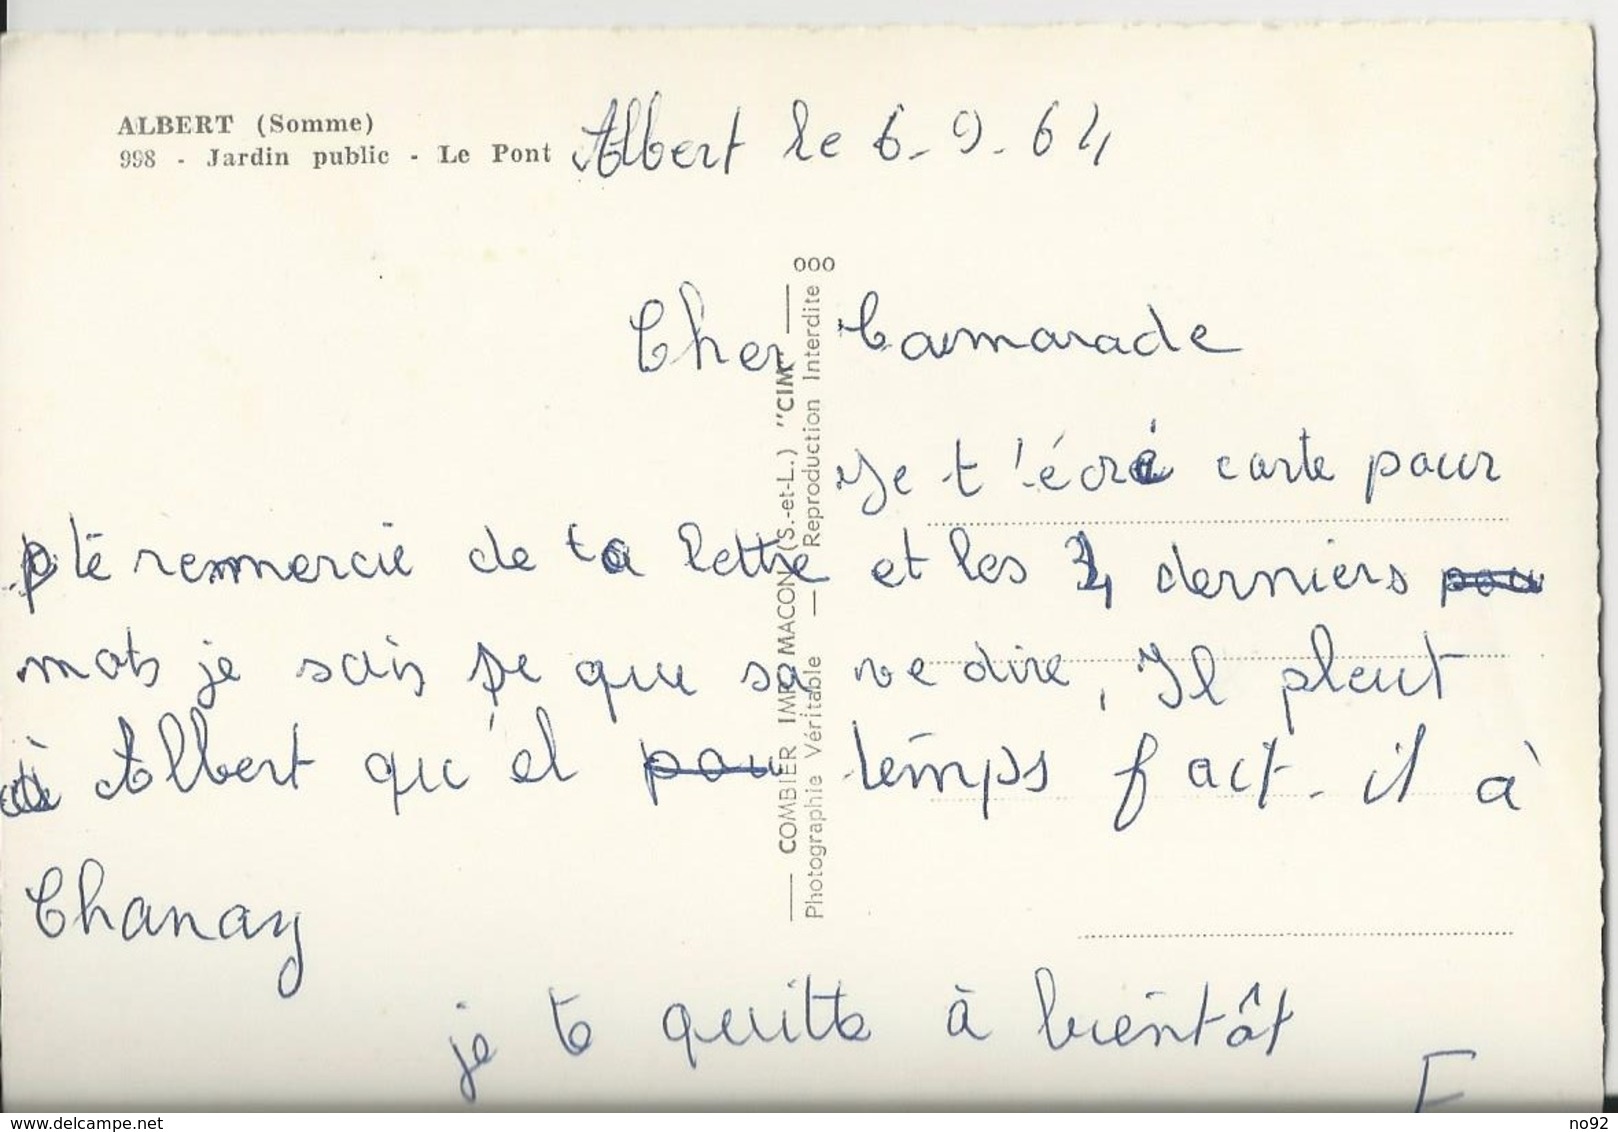 ALBERT (Somme)
998 - Jardin public - Le Pont
Albert le 6-9-64
Cher Camarade
Je t'écri carte pour
te remercie de ta lettre et les 4 derniers pou
mots je sais se que sa ve dire, Il pleut
à Albert qu'el pou temps fact-il à
Chanay
je te quitte à bientôt
F
COMBIER IMP. MACON (S.-et-L.) "CIM"
Photographie Véritable — Reproduction Interdite
000
delcampe.net
no92